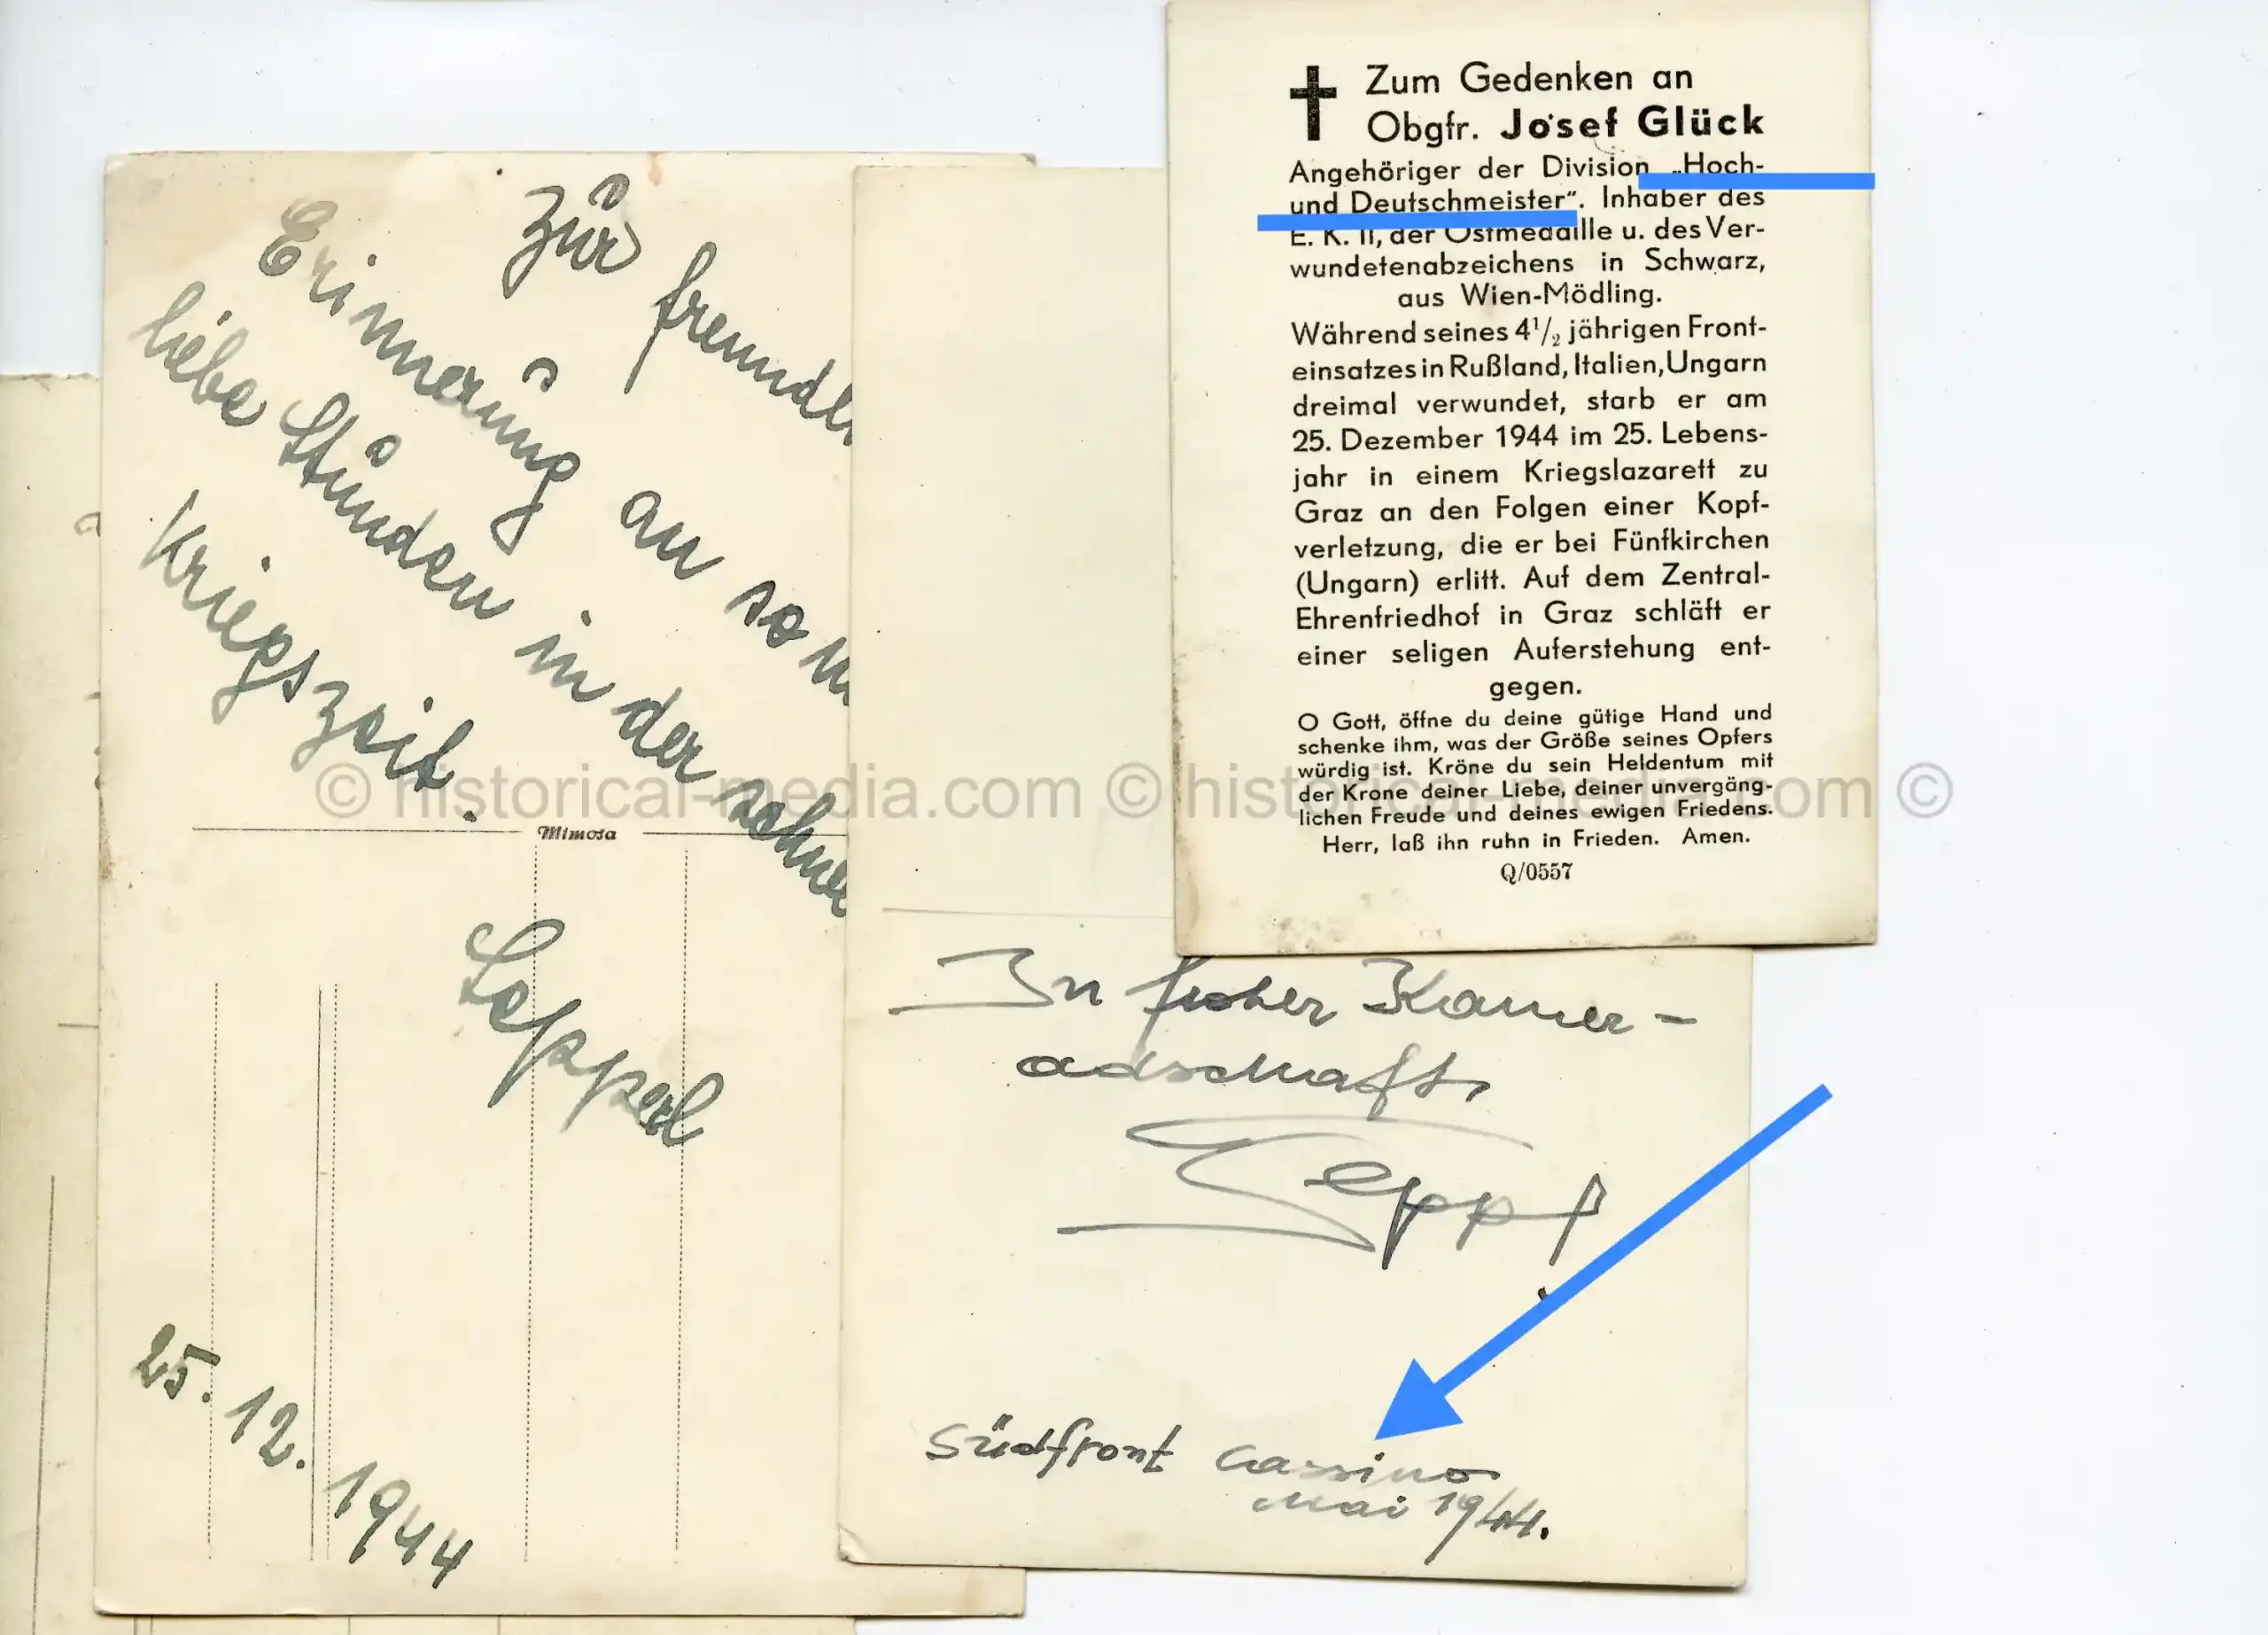 Zur freundl
Erinnerung an so m
liebe Stunden in der schwe
Kriegszeit.
Mimosa
Sepperl
25. 12. 1944
† Zum Gedenken an
Obgfr. Josef Glück
Angehöriger der Division „Hoch-
und Deutschmeister“. Inhaber des
E. K. II, der Ostmedaille u. des Ver-
wundetenabzeichens in Schwarz,
aus Wien-Mödling.
Während seines 4½ jährigen Front-
einsatzes in Rußland, Italien, Ungarn
dreimal verwundet, starb er am
25. Dezember 1944 im 25. Lebens-
jahr in einem Kriegslazarett zu
Graz an den Folgen einer Kopf-
verletzung, die er bei Fünfkirchen
(Ungarn) erlitt. Auf dem Zentral-
Ehrenfriedhof in Graz schläft er
einer seligen Auferstehung ent-
gegen.
O Gott, öffne du deine gütige Hand und
schenke ihm, was der Größe seines Opfers
würdig ist. Kröne du sein Heldentum mit
der Krone deiner Liebe, deiner unvergäng-
lichen Freude und deines ewigen Friedens.
Herr, laß ihn ruhn in Frieden. Amen.
Q/0557
In froher Kamer-
adschaft
Sepp
Südfront Cassino
Mai 1944.
© historical-media.com © historical-media.com ©